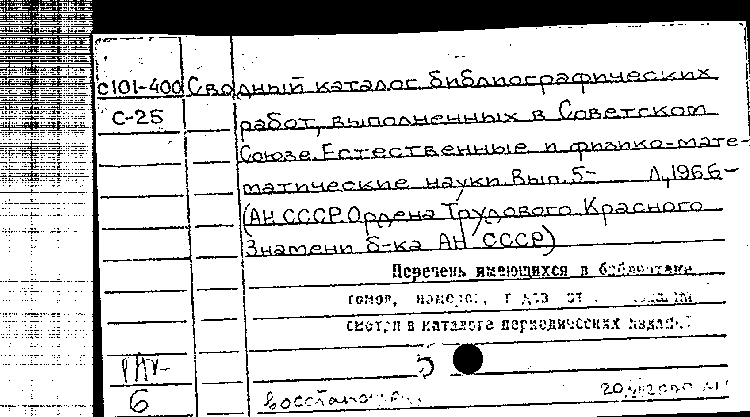 с101-400 Сводный каталог библиографических
С-25 работ, выполненных в Советском
Союзе. Естественные и физико-мате-
матические науки. Вып. 5- Л, 1966-
(АН СССР. Ордена Трудового Красного
Знамени б-ка АН СССР)
Перечень имеющихся в библиотеке
томов, номеров,
смотри в каталоге периодических изданий
5
6